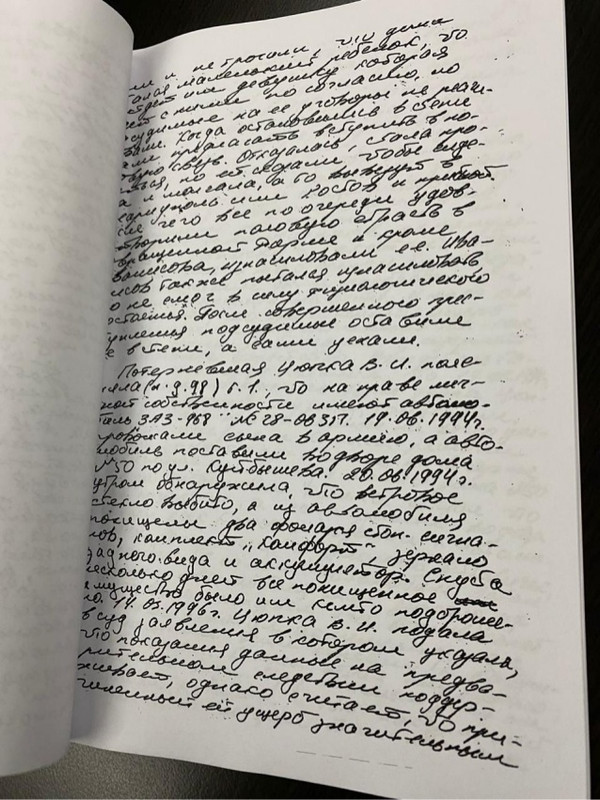 ли и не трогали, что дома
маленький ребенок, то
или девушку которая
с ними по согласию, но
подсудимые на ее уговоры не реаги-
ровали. Когда остановились в степи
предлагать вступить в по-
ловую связь. Отказалась, стала про-
но ей сказали, чтобы сиде-
ла и молчала, а то вывезут в
Мариуполь или Ростов и
чего все по очереди удов-
летворили половую страсть в
извращенной форме и кроме
изнасиловали ее.
также пытался изнасиловать
но не смог в силу физиологического
состояния. После совершенного прес-
тупления подсудимые оставили
ее в степи, а сами уехали.
Потерпевшая Цюпка В. И. пояс-
нила (л.д. 98) т. 1., что на праве лич-
ной собственности имеют автомо-
биль ЗАЗ-968 № 28-08 19.06.1994г.
провожали сына в армию, а авто-
мобиль поставили во дворе дома
№50 по ул. Куйбышева. 20.06.1994г.
утром обнаружила, что ветровое
стекло выбито, а из автомобиля
похищены два фонаря стоп-сигна-
лов, комплект „комфорт", зеркало
заднего вида и аккумулятор. Спустя
несколько дней все похищенное
имущество было им кем-то подброше-
но. 14.05.1996г. Цюпка В. И. подала
в суд заявления в котором указала,
что показания данные на предва-
рительном следствии поддер-
живает, однако считает, что при-
чиненный ей ущерб значительным